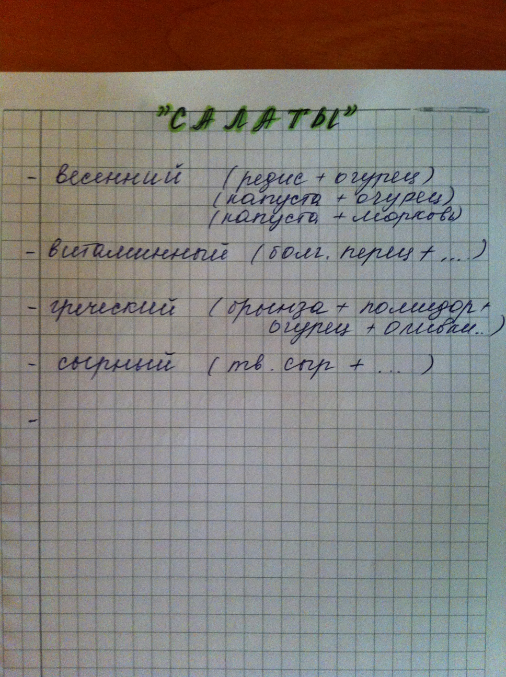 "САЛАТЫ"
- весенний (редис + огурец)
(капуста + огурец)
(капуста + морковь)
- витаминный (болг. перец + ....)
- греческий (брынза + помидор +
огурец + оливки..)
- сырный (тв. сыр + ... )
-